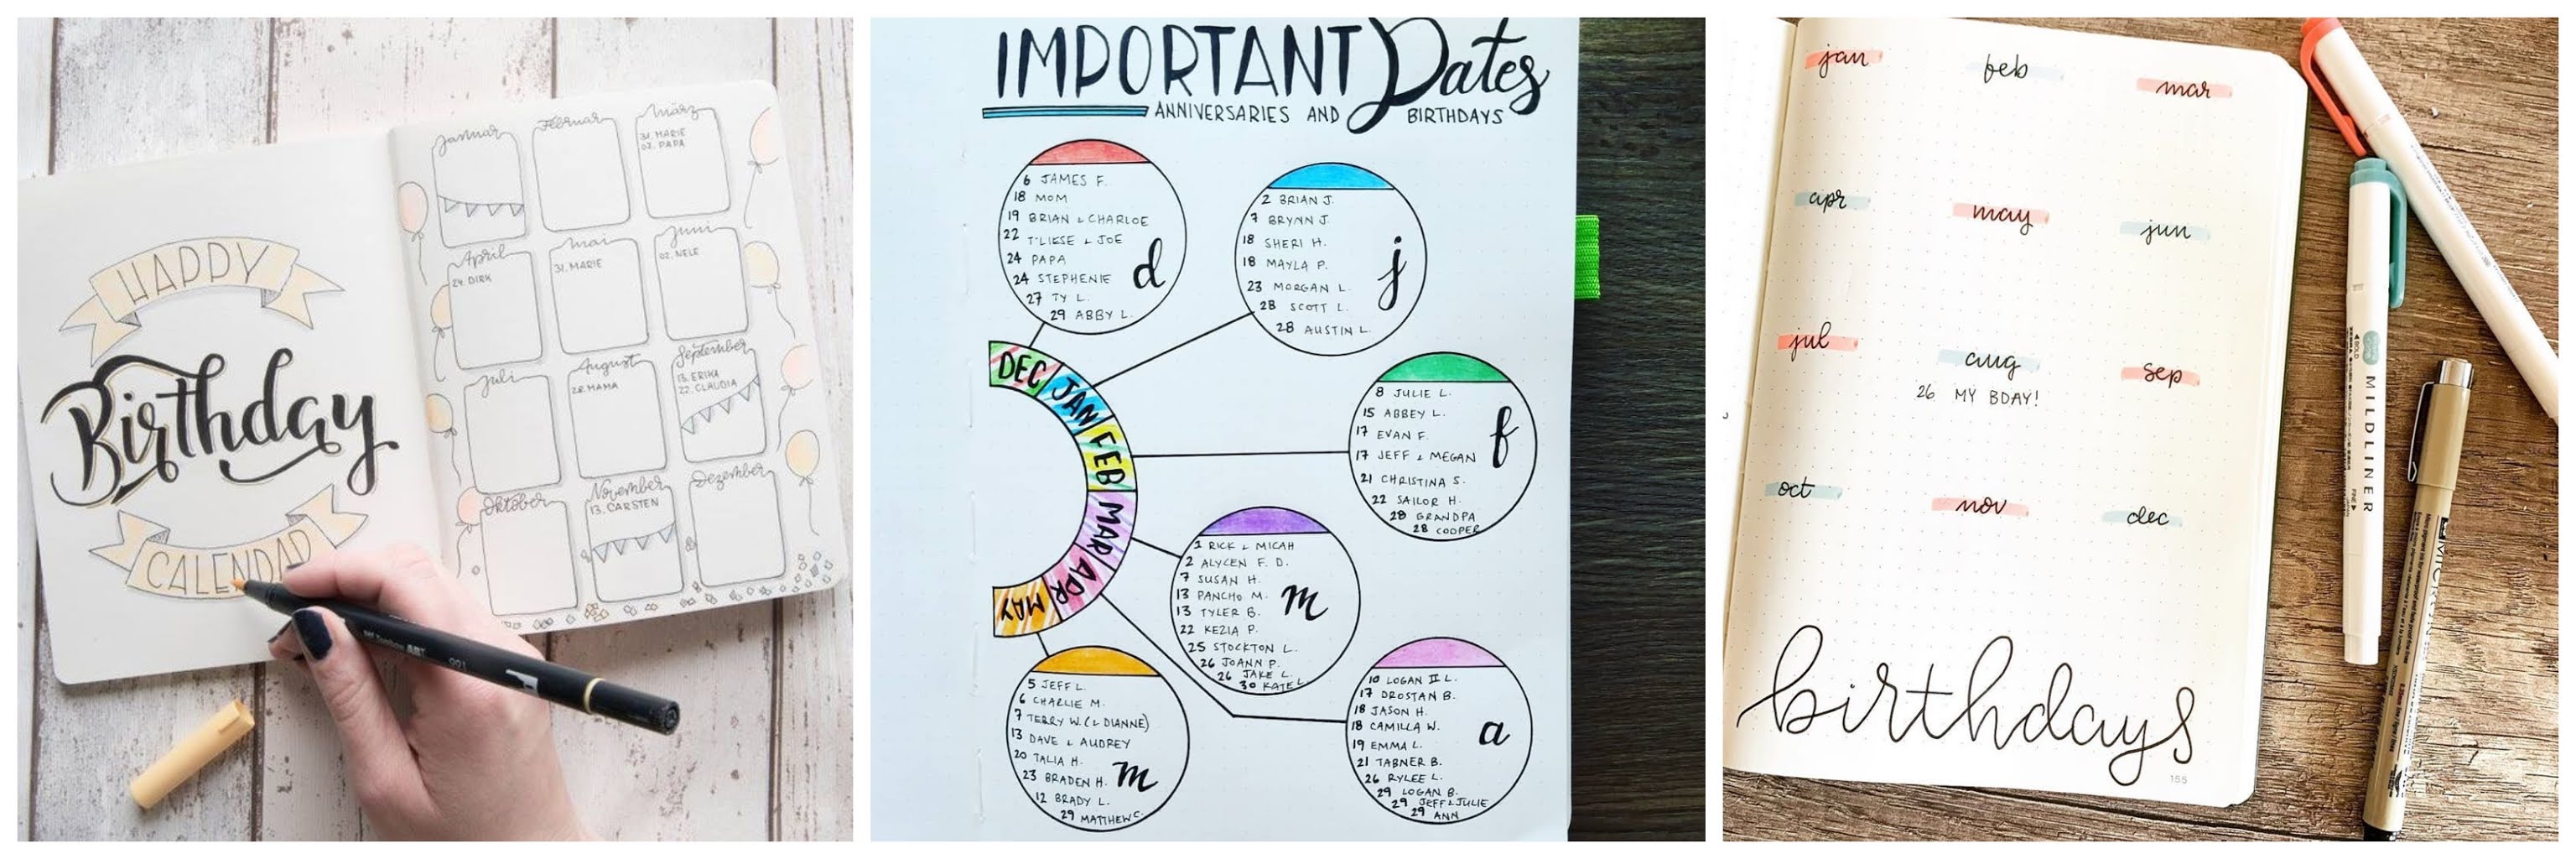 HAPPY
Birthday
CALENDAR
Januar
Februar
März
31. MARIE
07. PAPA
April
24. DIRK
Mai
31. MARIE
Juni
02. NELE
Juli
August
22. MAMA
September
13. ERIKA
22. CLAUDIA
Oktober
November
13. CARSTEN
Dezember
991
IMPORTANT Dates
ANNIVERSARIES AND BIRTHDAYS
6 JAMES F.
18 MOM
19 BRIAN & CHARLOE
22 T'LIESE & JOE
24 PAPA
24 STEPHENIE
27 TY L.
29 ABBY L.
d
2 BRIAN J.
7 BRYNN J.
18 SHERI H.
18 MAYLA P.
23 MORGAN L.
28 SCOTT L.
28 AUSTIN L.
j
DEC
JAN
FEB
MAR
APR
MAY
8 JULIE L.
15 ABBEY L.
17 EVAN F.
17 JEFF & MEGAN
21 CHRISTINA S.
22 SAILOR H.
28 GRANDPA
28 COOPER
f
1 RICK & MICAH
2 ALYCEN F. D.
7 SUSAN H.
13 PANCHO M.
13 TYLER B.
22 KEZIA P.
25 STOCKTON L.
26 JOANN P.
26 JAKE L.
30 KATE L.
m
5 JEFF L.
6 CHARLIE M.
7 TERRY W. (& DIANNE)
13 DAVE & AUDREY
20 TALIA H.
23 BRADEN H.
12 BRADY L.
29 MATTHEW C.
m
10 LOGAN II L.
17 DROSTAN B.
18 JASON H.
18 CAMILLA W.
19 EMMA L.
21 TABNER B.
26 RYLEE L.
29 LOGAN B.
29 JEFF & JULIE
29 ANN
a
jan
feb
mar
apr
may
jun
jul
aug
26 MY BDAY!
sep
oct
nov
dec
birthdays
155
MILDLINER